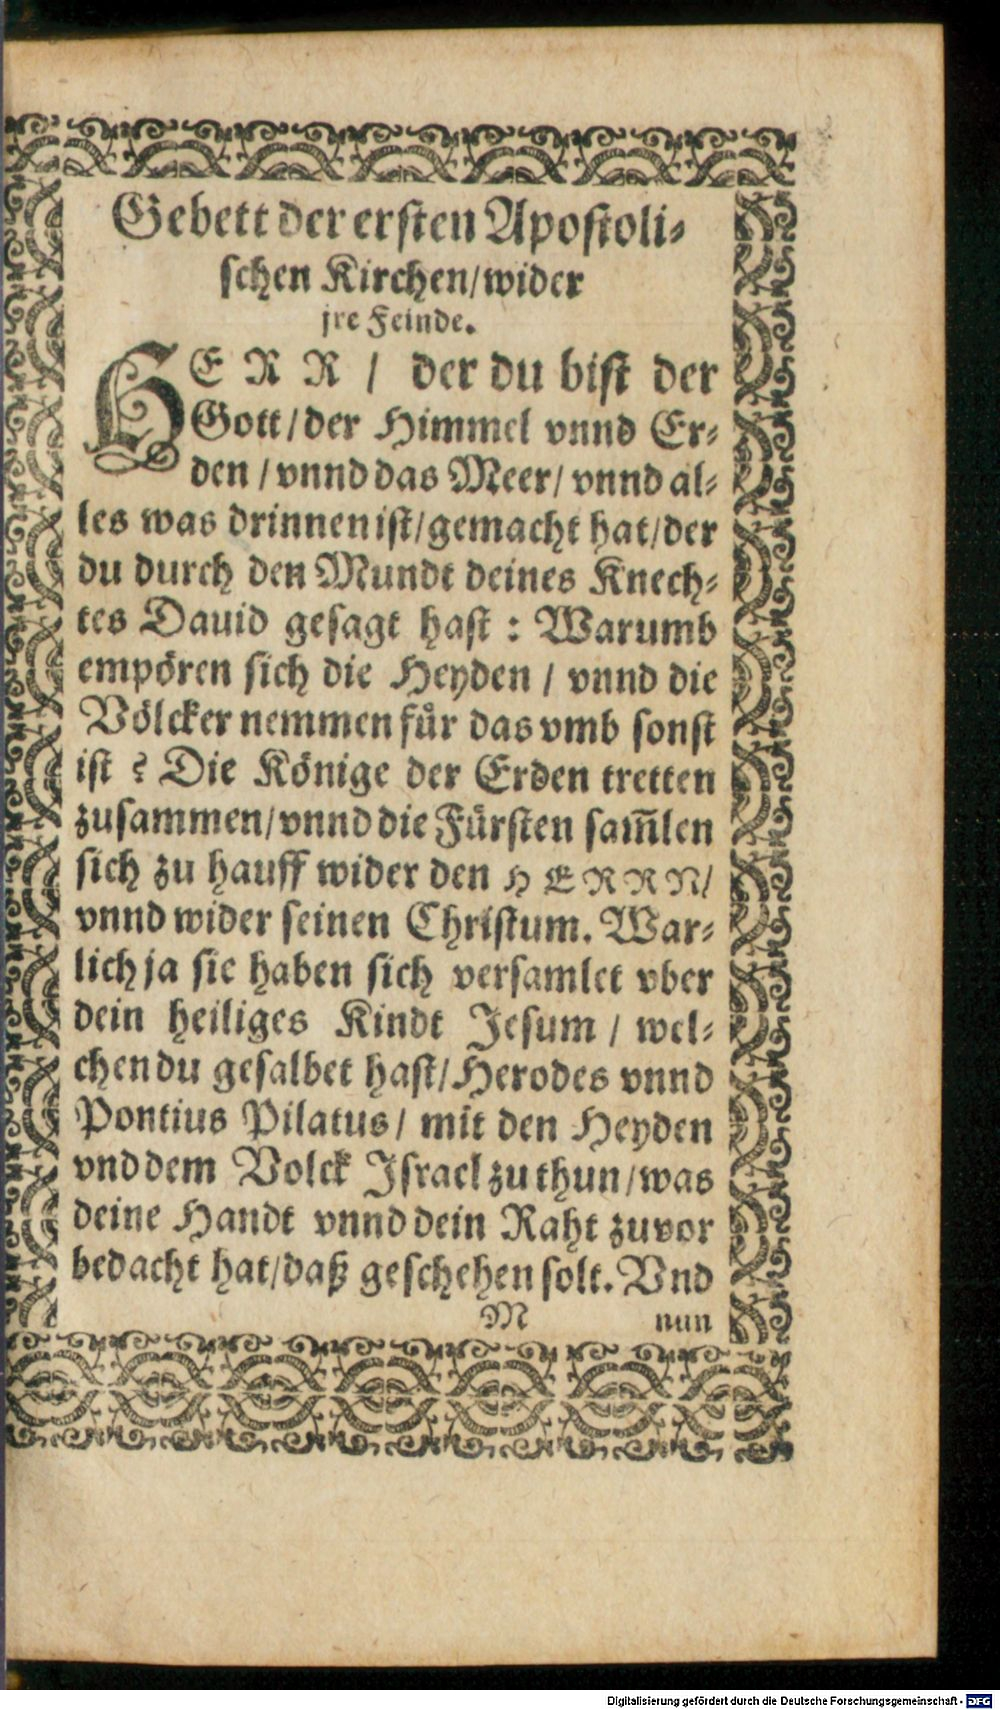 Gebett der ersten Apostoli-
schen Kirchen/wider
jre Feinde.
HERR / der du bist der
Gott/der Himmel vnnd Er-
den / vnnd das Meer/ vnnd al-
les was drinnen ist/gemacht hat/der
du durch den Mundt deines Knech-
tes Dauid gesagt hast : Warumb
empören sich die Heyden / vnnd die
Völcker nemmen für das vmb sonst
ist ? Die Könige der Erden tretten
zusammen/vnnd die Fürsten sam̃len
sich zu hauff wider den HERRN/
vnnd wider seinen Christum. War-
lich ja sie haben sich versamlet vber
dein heiliges Kindt Jesum / wel-
chen du gesalbet hast/Herodes vnnd
Pontius Pilatus/ mit den Heyden
vnd dem Volck Israel zu thun/was
deine Handt vnnd dein Raht zuvor
bedacht hat/daß geschehen solt. Vnd
M nun
Digitalisierung gefördert durch die Deutsche Forschungsgemeinschaft - DFG